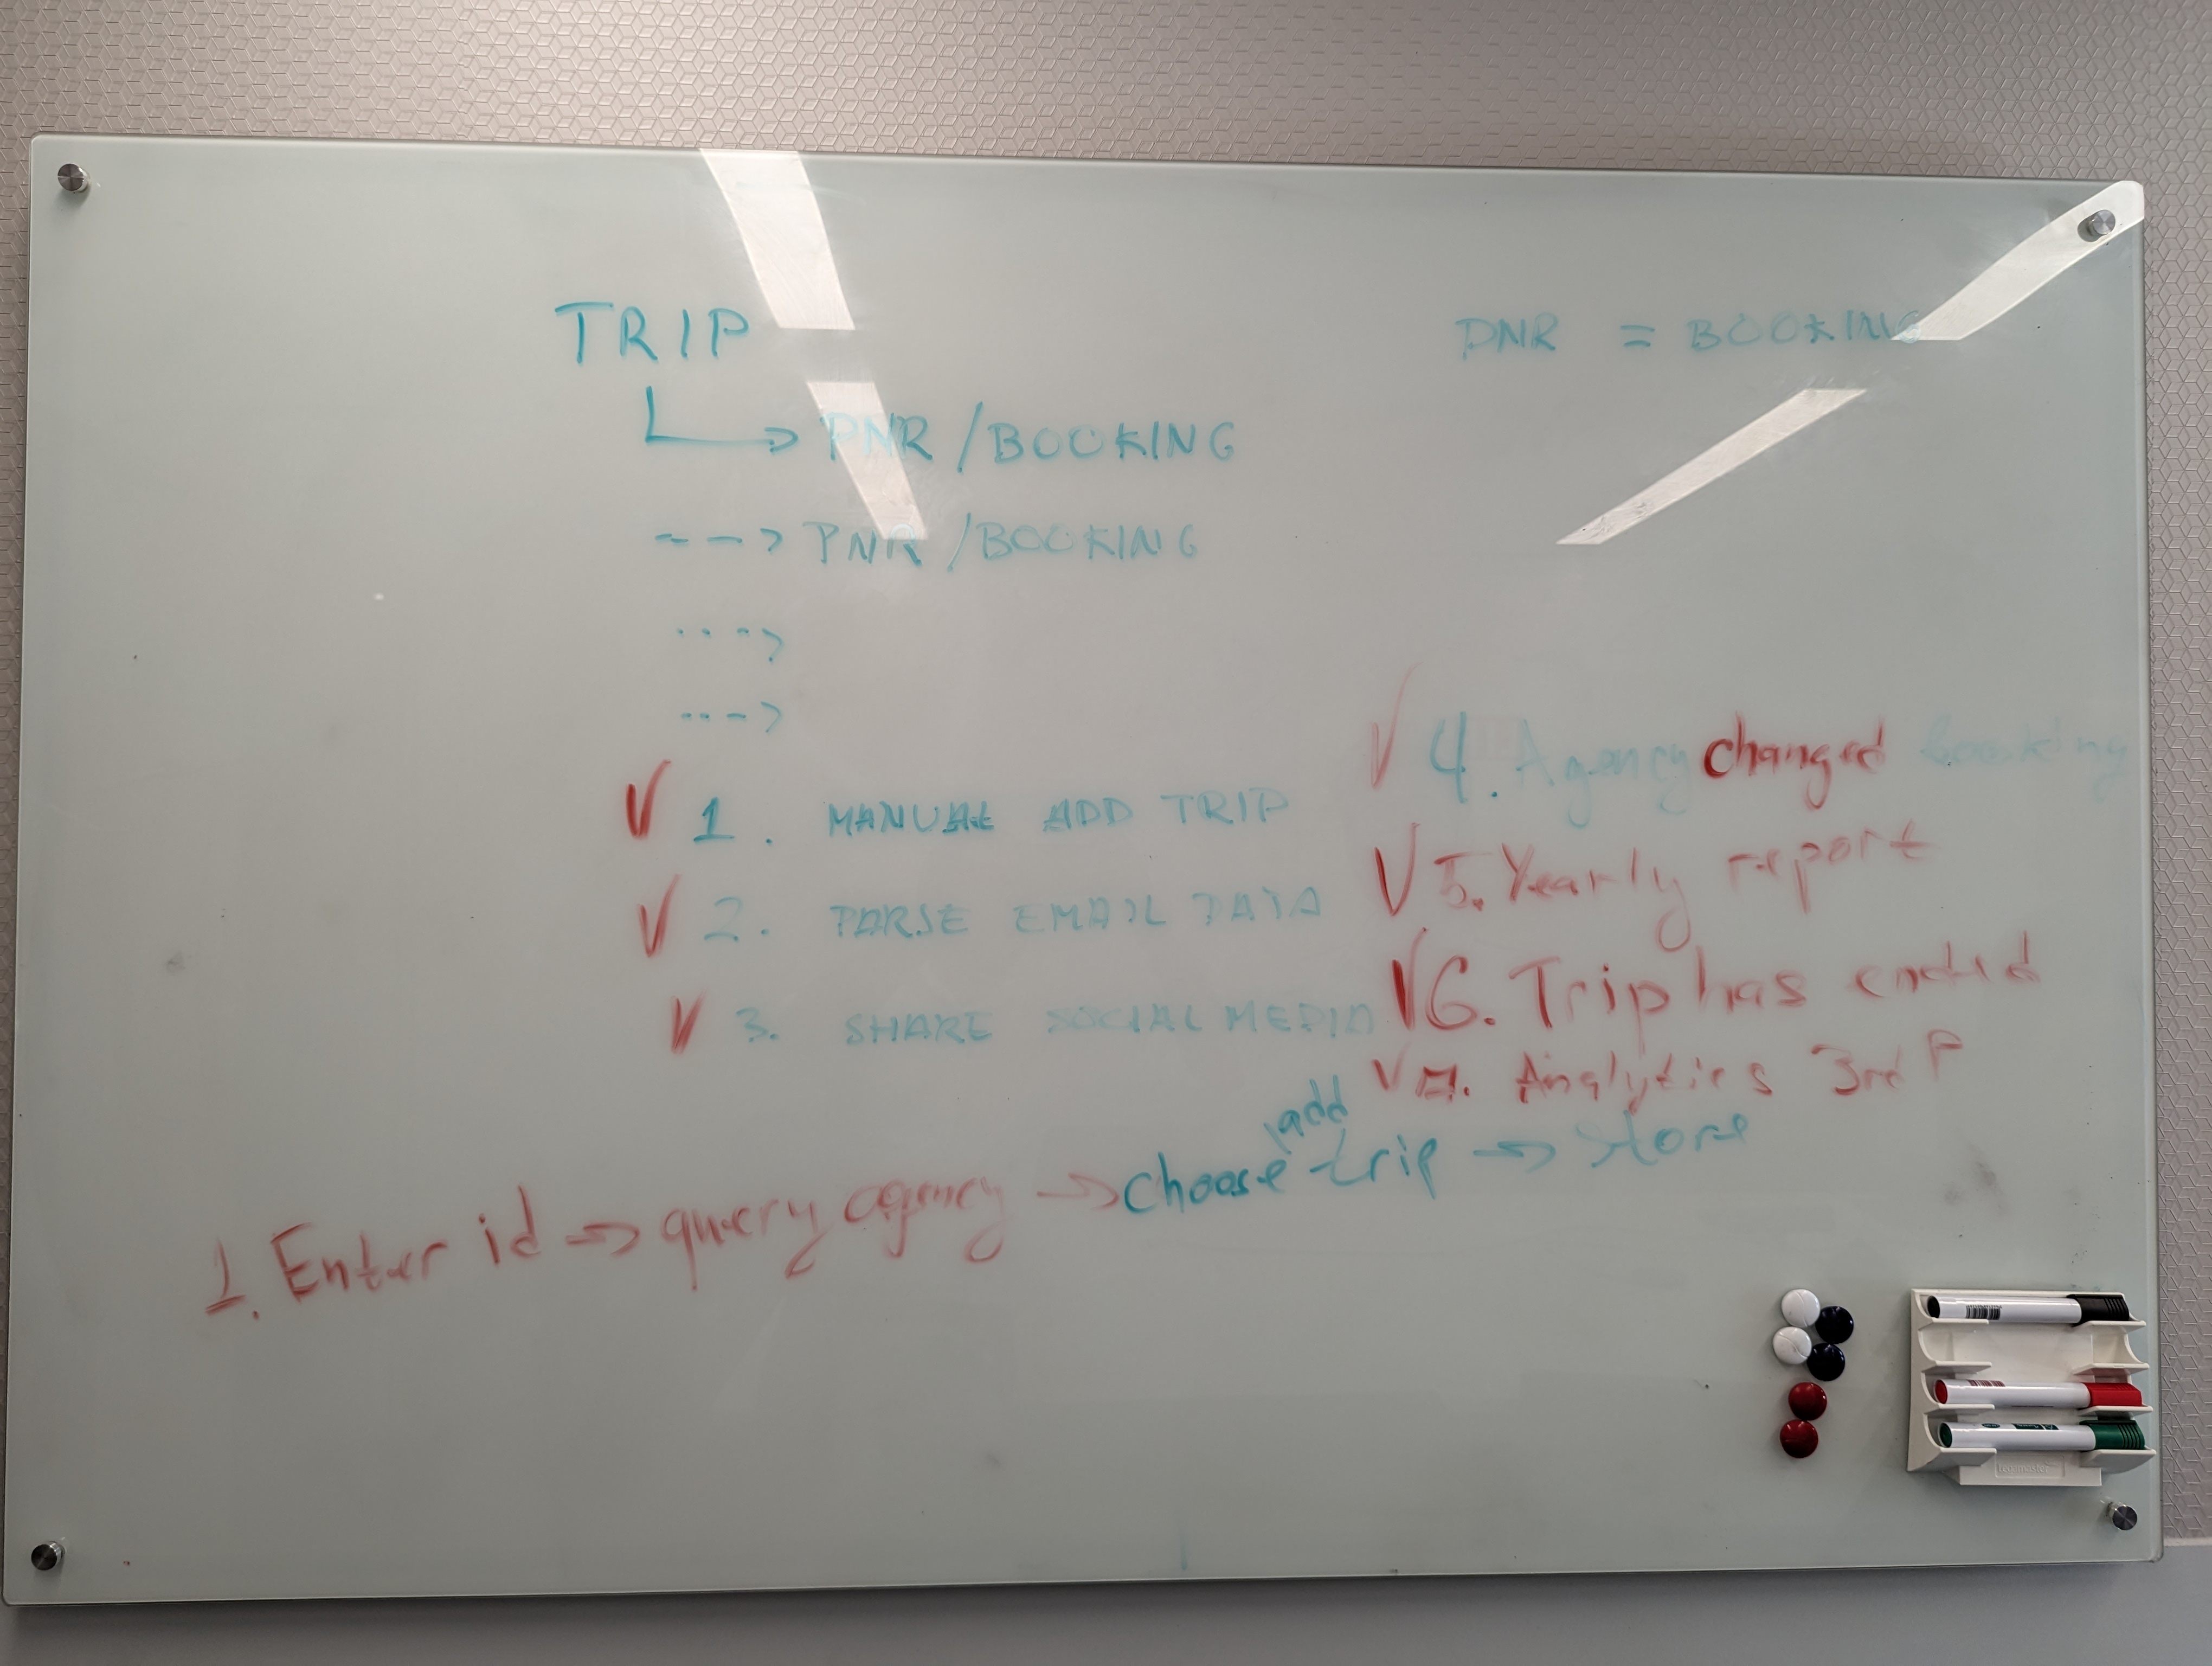 TRIP
PNR = BOOKING
PNR / BOOKING
PNR / BOOKING
1. MANUAL ADD TRIP
2. PARSE EMAIL DATA
3. SHARE SOCIAL MEDIA
4. Agency changed booking
5. Yearly report
6. Trip has ended
7. Analytics 3rd P
add
1. Enter id → query agency → choose trip → store